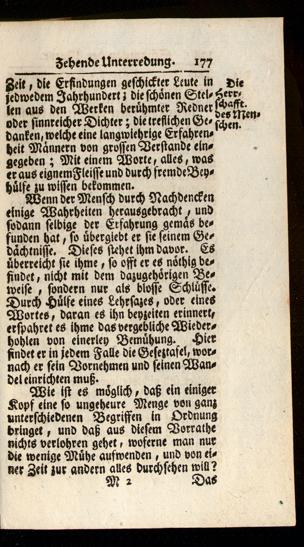 Zehende Unterredung. 177
Zeit, die Erfindungen geschickter Leute in
jedwedem Jahrhundert; die schönen Stel-
len aus den Werken berühmter Redner
oder sinnreicher Dichter; die treflichen Ge-
danken, welche eine langwiehrige Erfahren-
heit Männern von grossen Verstande ein-
gegeben; Mit einem Worte, alles, was
er aus eignem Fleisse und durch fremde Bey-
hülfe zu wissen bekommen.
Die
Herr-
schafft
des Men-
schen.
Wenn der Mensch durch Nachdencken
einige Wahrheiten herausgebracht, und
sodann selbige der Erfahrung gemäs be-
funden hat, so übergiebt er sie seinem Ge-
dächtnisse. Dieses stehet ihm davor. Es
überreicht sie ihme, so offt er es nöthig be-
findet, nicht mit dem dazugehörigen Be-
weise, sondern nur als blosse Schlüsse.
Durch Hülfe eines Lehrsazes, oder eines
Wortes, daran es ihn beyzeiten erinnert,
erspahret es ihme das vergebliche Wieder-
hohlen von einerley Bemühung. Hier
findet er in jedem Falle die Geseztafel, wor-
nach er sein Vornehmen und seinen Wan-
del einrichten muß.
Wie ist es möglich, daß ein einiger
Kopf eine so ungeheure Menge von ganz
unterschiedenen Begriffen in Ordnung
bringet, und daß aus diesem Vorrathe
nichts verlohren gehet, woferne man nur
die wenige Mühe aufwenden, und von ei-
ner Zeit zur andern alles durchsehen will?
M 2 Das